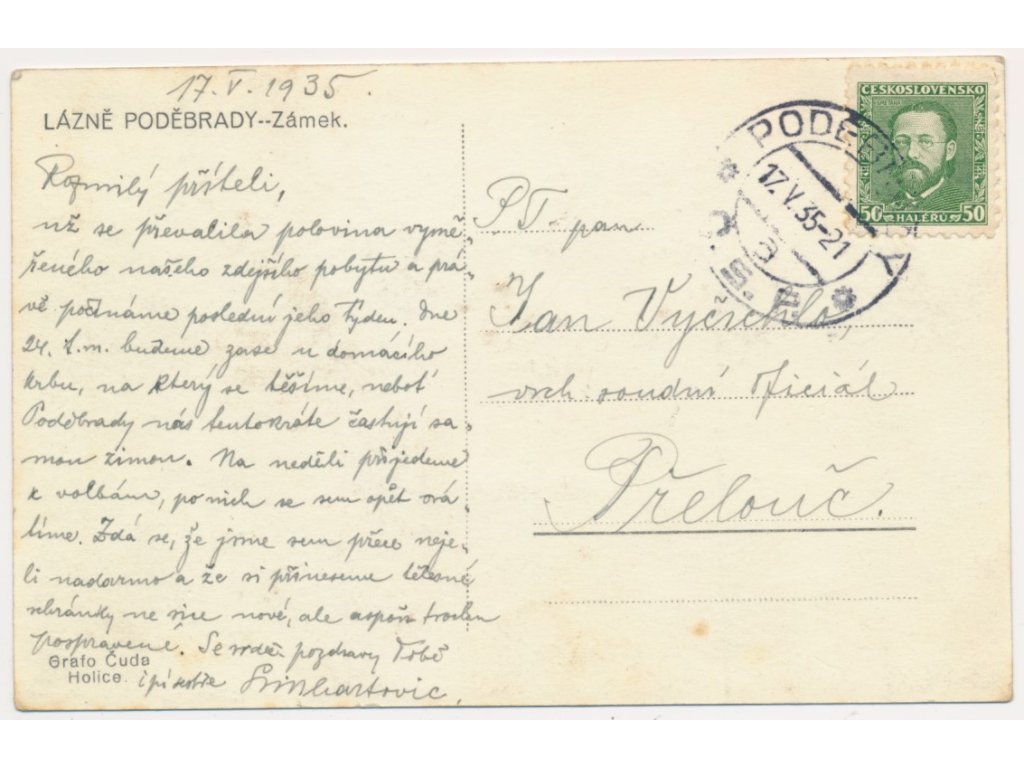 17. V. 1935.
LÁZNĚ PODĚBRADY--Zámek.
Rozmilý příteli,
už se převalila polovina vymě-
řeného našeho zdejšího pobytu a prá-
vě počínáme poslední jeho týden. Dne
24. t. m. budeme zase u domácího
krbu, na který se těšíme, neboť
Poděbrady nás tentokráte častují sa-
mou zimou. Na neděli přijedeme
k volbám, po nich se sem opět vrá-
tíme. Zdá se, že jsme sem přece neje-
li nadarmo a že si přineseme tělesné
schránky ne sice nové, ale aspoň trochu
pospravené. Se srdeč. pozdravy Tobě
i
Grafo Čuda
Holice.
P.T. pan
Jan
vrch. soudní oficiál
Přelouč.
ČESKOSLOVENSKO
SMETANA
50 HALÉŘŮ 50
PODĚBRADY
17.V.35-21